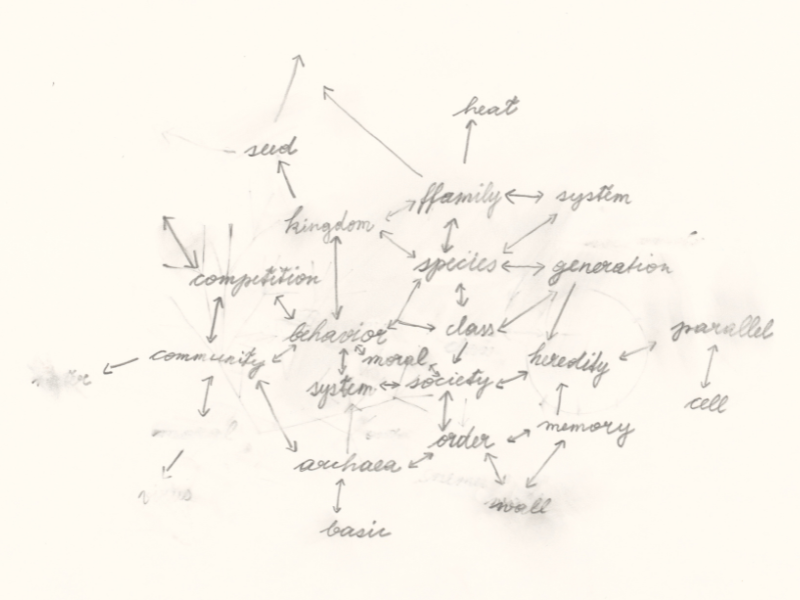 heat
seed
ffamily
system
kingdom
species
generation
competition
behavior
class
parallel
community
moral
heredity
system
society
cell
order
memory
archaea
wall
basic